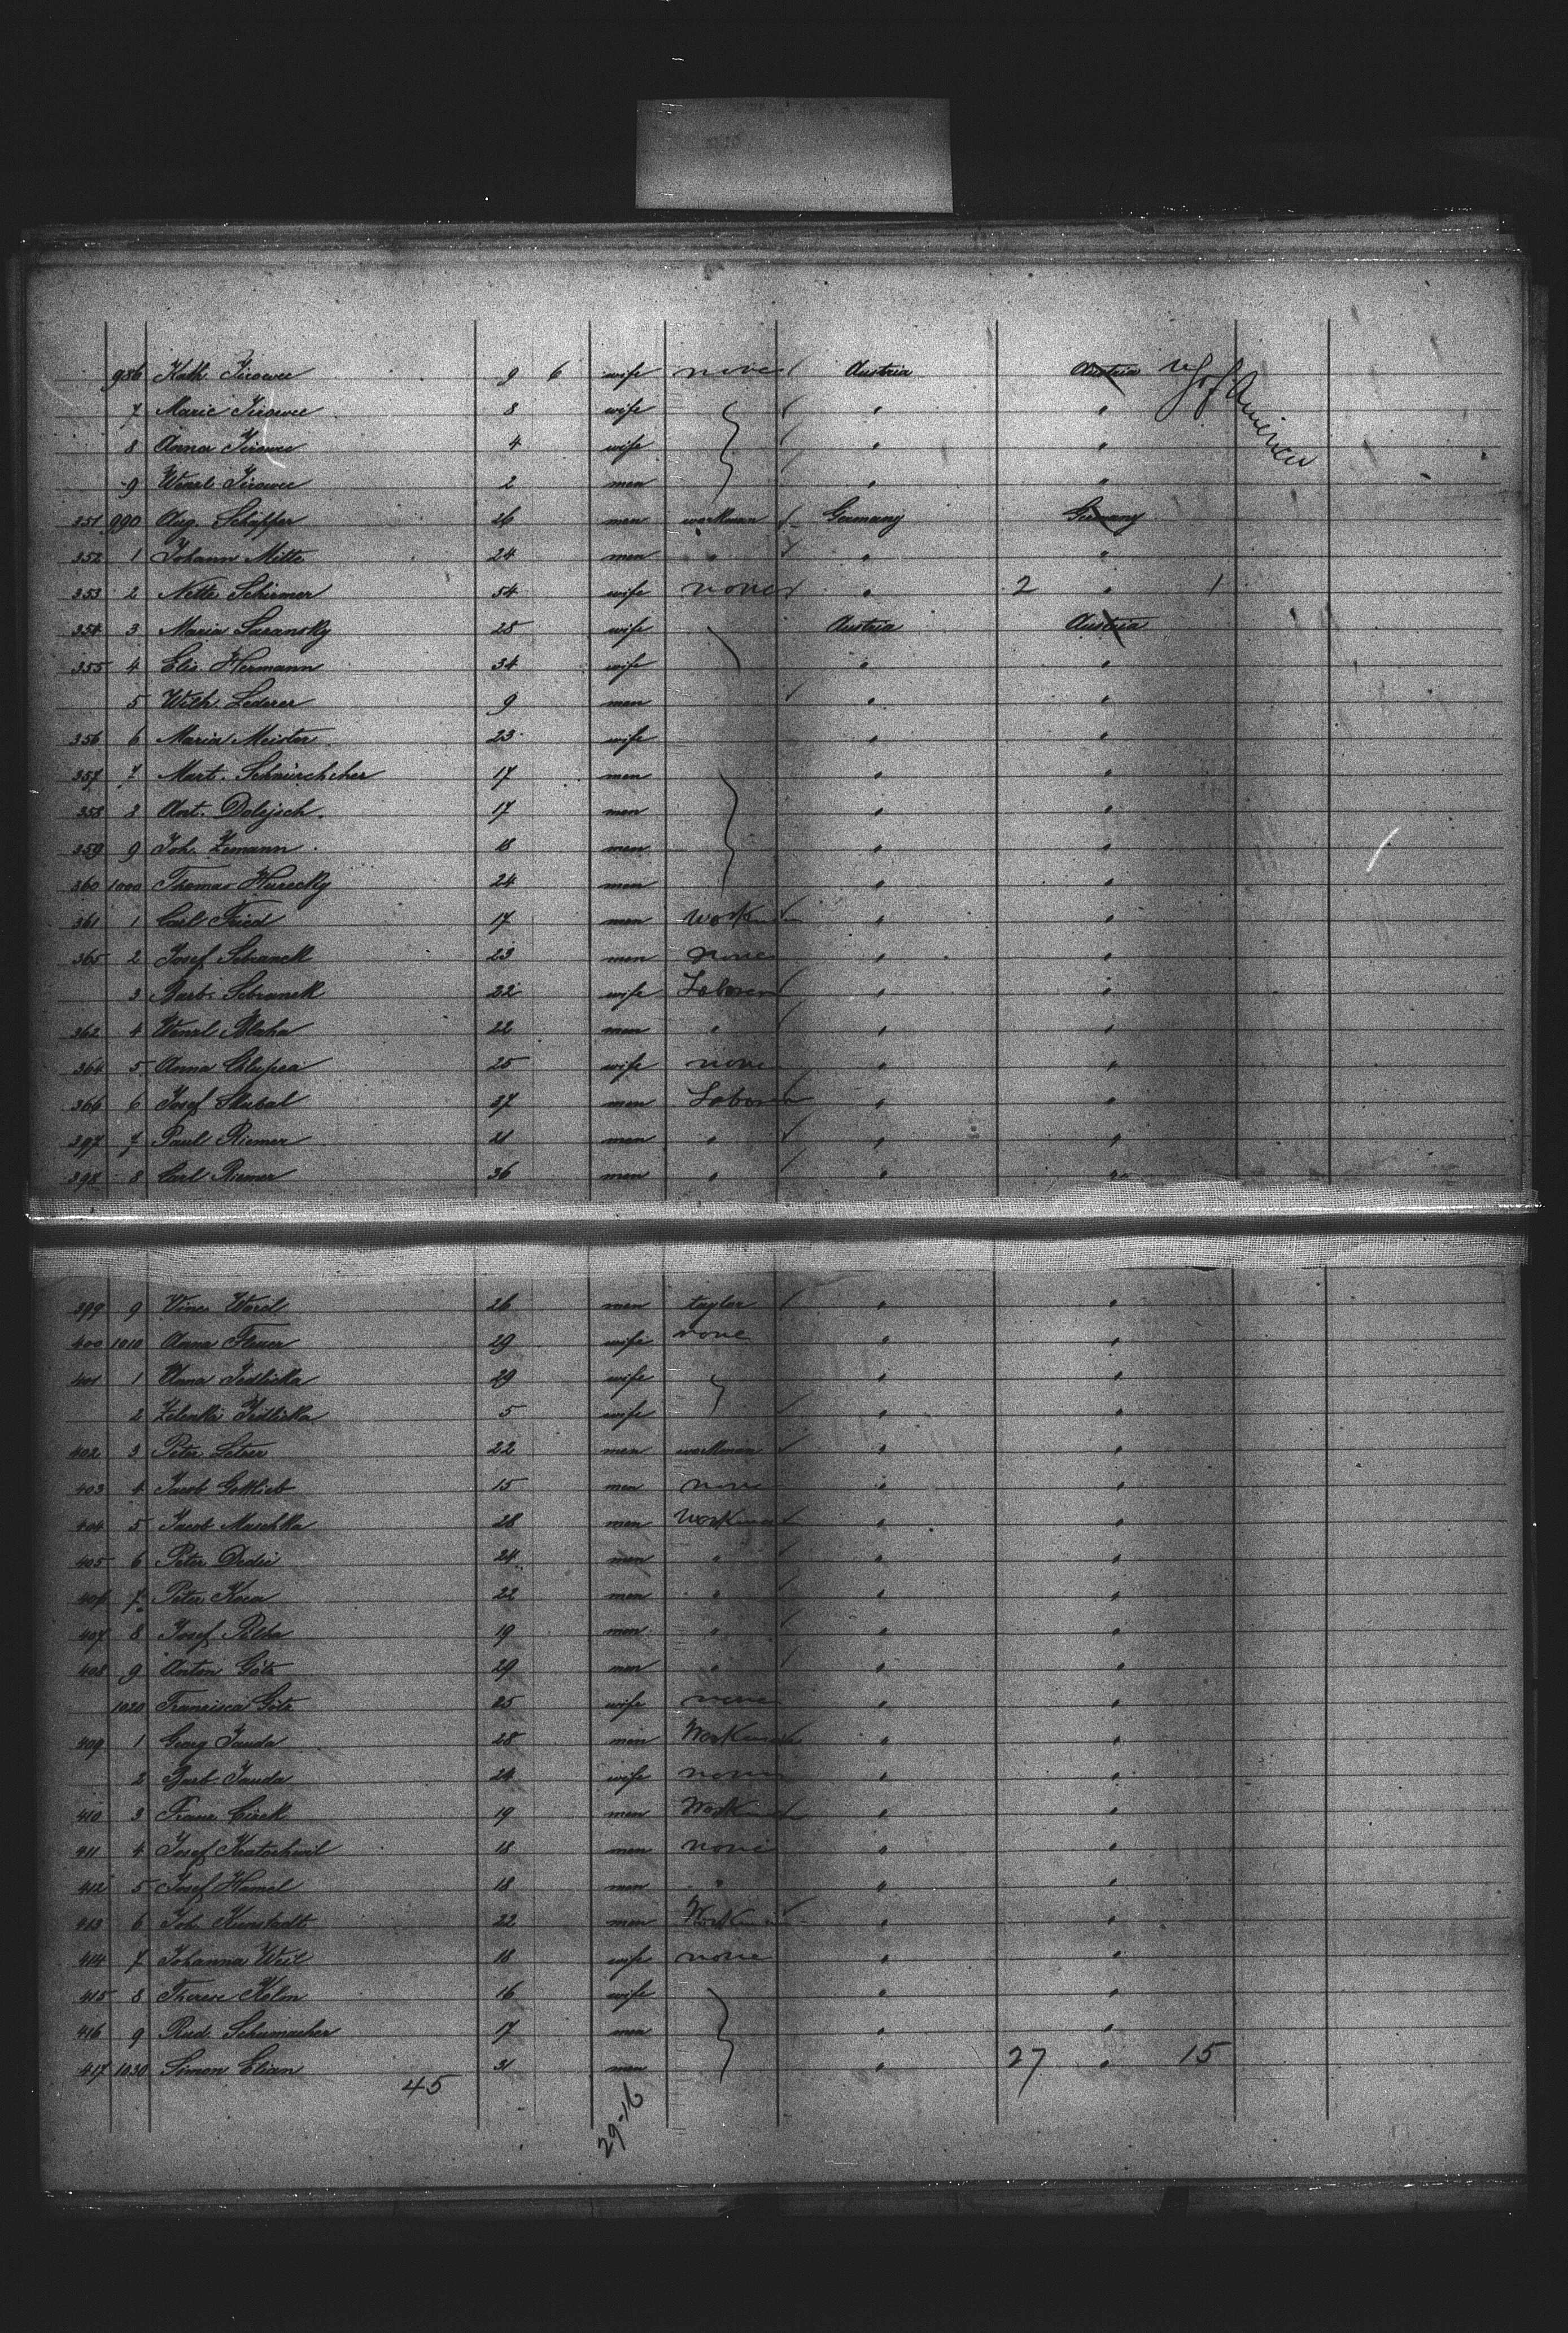 986 Kath. Jirowec 9 6 wife none Austria Austria U. S. of America
7 Marie Jirowec 8 wife " "
8 Anna Jirowec 4 wife " "
9 Wenzl Jirowec 2 men " "
351 990 Aug. Scheffer 26 men workman Germany Germany
352 1 Johann Mitte 24 men " " "
353 2 Nette Schirmer 54 wife none " 2 " 1
354 3 Maria Saransky 25 wife Austria Austria
355 4 Elis Hermann 34 wife " "
5 Wilh. Lederer 9 men " "
356 6 Maria Meister 23 wife " "
357 7 Mart. 17 men " "
358 8 Ant. Dolejsch 17 men " "
359 9 Joh. Zemann 18 men " "
360 1000 Thomas Hurecky 24 men " "
361 1 Carl Fried 17 men workman " "
365 2 Josef Sebranek 23 men none " "
3 Barb. Sebranek 22 wife Laborer " "
362 4 Wenzl Blaha 22 men " " "
364 5 Anna 25 wife none " "
366 6 Josef Skubal 37 men Laborer " "
397 7 Paul Riemer 21 men " " "
398 8 Carl Riemer 36 men " " "
399 9 Vinc. 26 men taylor " "
400 1010 Anna 29 wife none " "
401 1 Anna Jedlicka 29 wife " "
2 Zdenka Jedlicka 5 wife " "
402 3 Peter 22 men workman " "
403 4 Jacob Gottlieb 15 men none " "
404 5 Jacob Maschka 28 men Workman " "
405 6 Peter Dedic 24 men " " "
406 7 Peter Koca 22 men " " "
407 8 Josef 19 men " " "
408 9 Anton Götz 29 men " " "
1020 Francisca Götz 25 wife none " "
409 1 Georg Janda 28 men Workman " "
2 Barb. Janda 24 wife none " "
410 3 Franz 19 men Workman " "
411 4 Josef Kratochwil 18 men none " "
412 5 Josef Hamel 18 men " " "
413 6 Joh. Kunstadt 22 men Workman " "
414 7 Johanna Weil 18 wife none " "
415 8 Therese Kolm 16 wife " "
416 9 Rud. Schumacher 17 men " "
417 1030 Simon Elian 31 men " 27 " 15
45
29-16